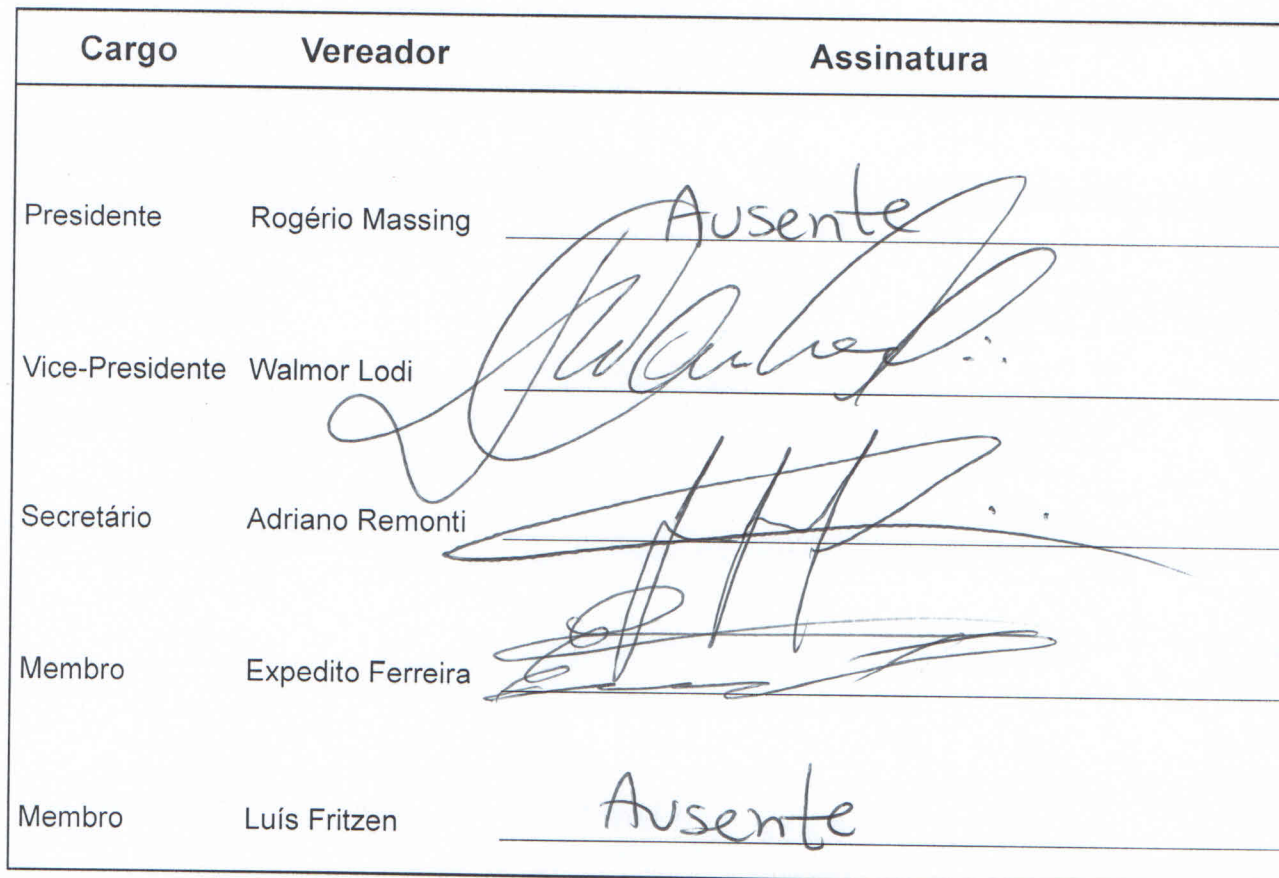 Cargo Vereador Assinatura
Presidente Rogério Massing Ausente
Vice-Presidente Walmor Lodi
Secretário Adriano Remonti
Membro Expedito Ferreira
Membro Luís Fritzen Ausente